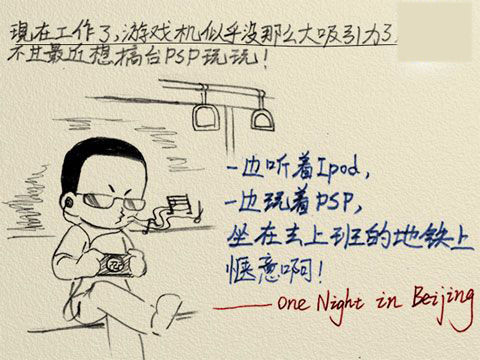 現在工作了,游戏机似乎没那么大吸引力了
不过最近想搞台PSP玩玩!
一边听着Ipod,
一边玩着PSP,
坐在去上班的地铁上
惬意啊!
——One Night in Beijing